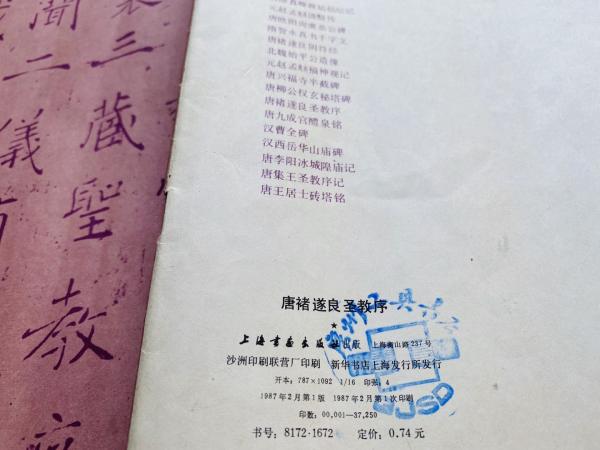 聞二儀
三藏聖教
元赵孟頫福神观记
唐兴福寺半截碑
唐柳公权玄秘塔碑
唐褚遂良圣教序
唐九成宫醴泉铭
汉曹全碑
汉西岳华山庙碑
唐李阳冰城隍庙记
唐集王圣教序记
唐王居士砖塔铭
隋智永真书千字文
唐褚遂良阴符经
北魏始平公造像
唐褚遂良圣教序
★
上海书画出版社出版 上海衡山路237号
沙洲印刷联营厂印刷 新华书店上海发行所发行
开本：787×1092 1/16 印张：4
1987年2月第1版 1987年2月第1次印刷
印数：00,001—37,250
书号：8172·1672 定价：0.74元